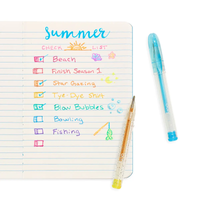 Summer
LIST
Beach
Finish Season 1
Star Gazing
Tye-Dye Shirt
Blow Bubbles
Bowling
Fishing